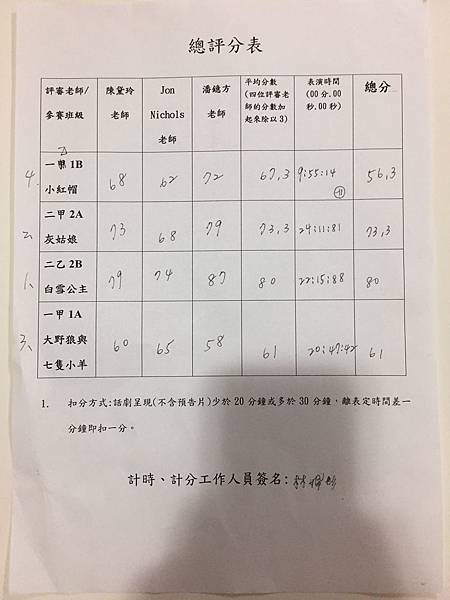 總評分表
評審老師/ 陳黛玲 Jon 潘鏸方 平均分數 表演時間 總分
參賽班級 老師 Nichols 老師 (四位評審老 (00分.00
老師 師的分數加 秒.00秒)
起來除以3)
4. 一樂 1B 乙 68 62 72 67.3 9:55:14 56.3
小紅帽 -11
2、 二甲 2A 73 68 79 73.3 24:11:81 73.3
灰姑娘
1、 二乙 2B 79 74 87 80 22:15:88 80
白雪公主
3、 一甲 1A 60 65 58 61 20:47:42 61
大野狼與
七隻小羊
1. 扣分方式:話劇呈現(不含預告片)少於 20 分鐘或多於 30 分鐘，離表定時間差一
分鐘即扣一分。
計時、計分工作人員簽名: